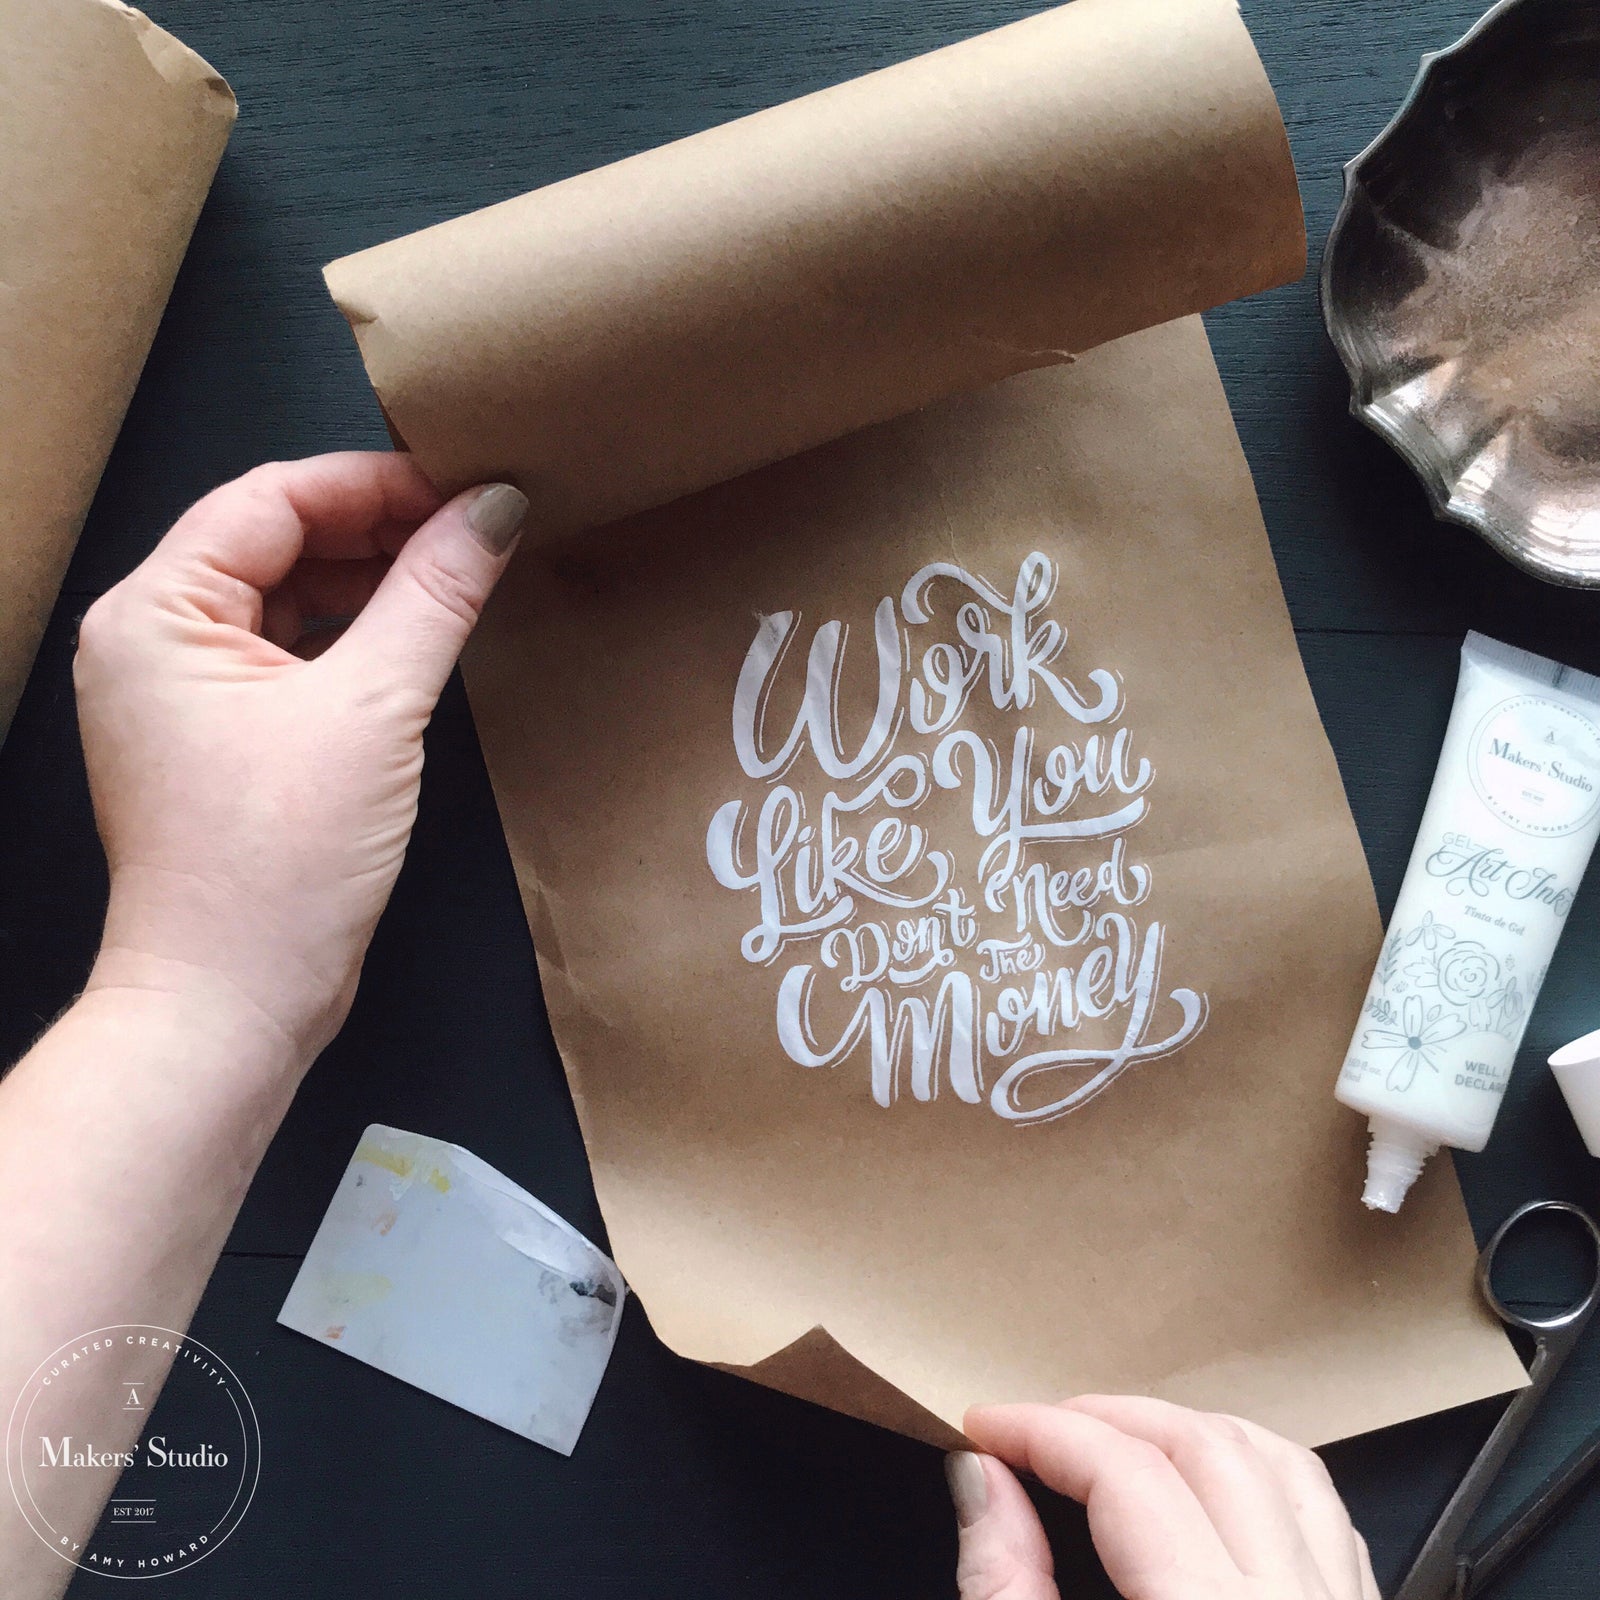 Work
Like You
Dont Need
The
Money
CURATED CREATIVITY
A
Makers' Studio
EST 2017
BY AMY HOWARD
GEL
Art Ink
Tinta de Gel
WELL, I
DECLARE
CURATED CREATIVITY
A
Makers' Studio
EST 2017
BY AMY HOWARD